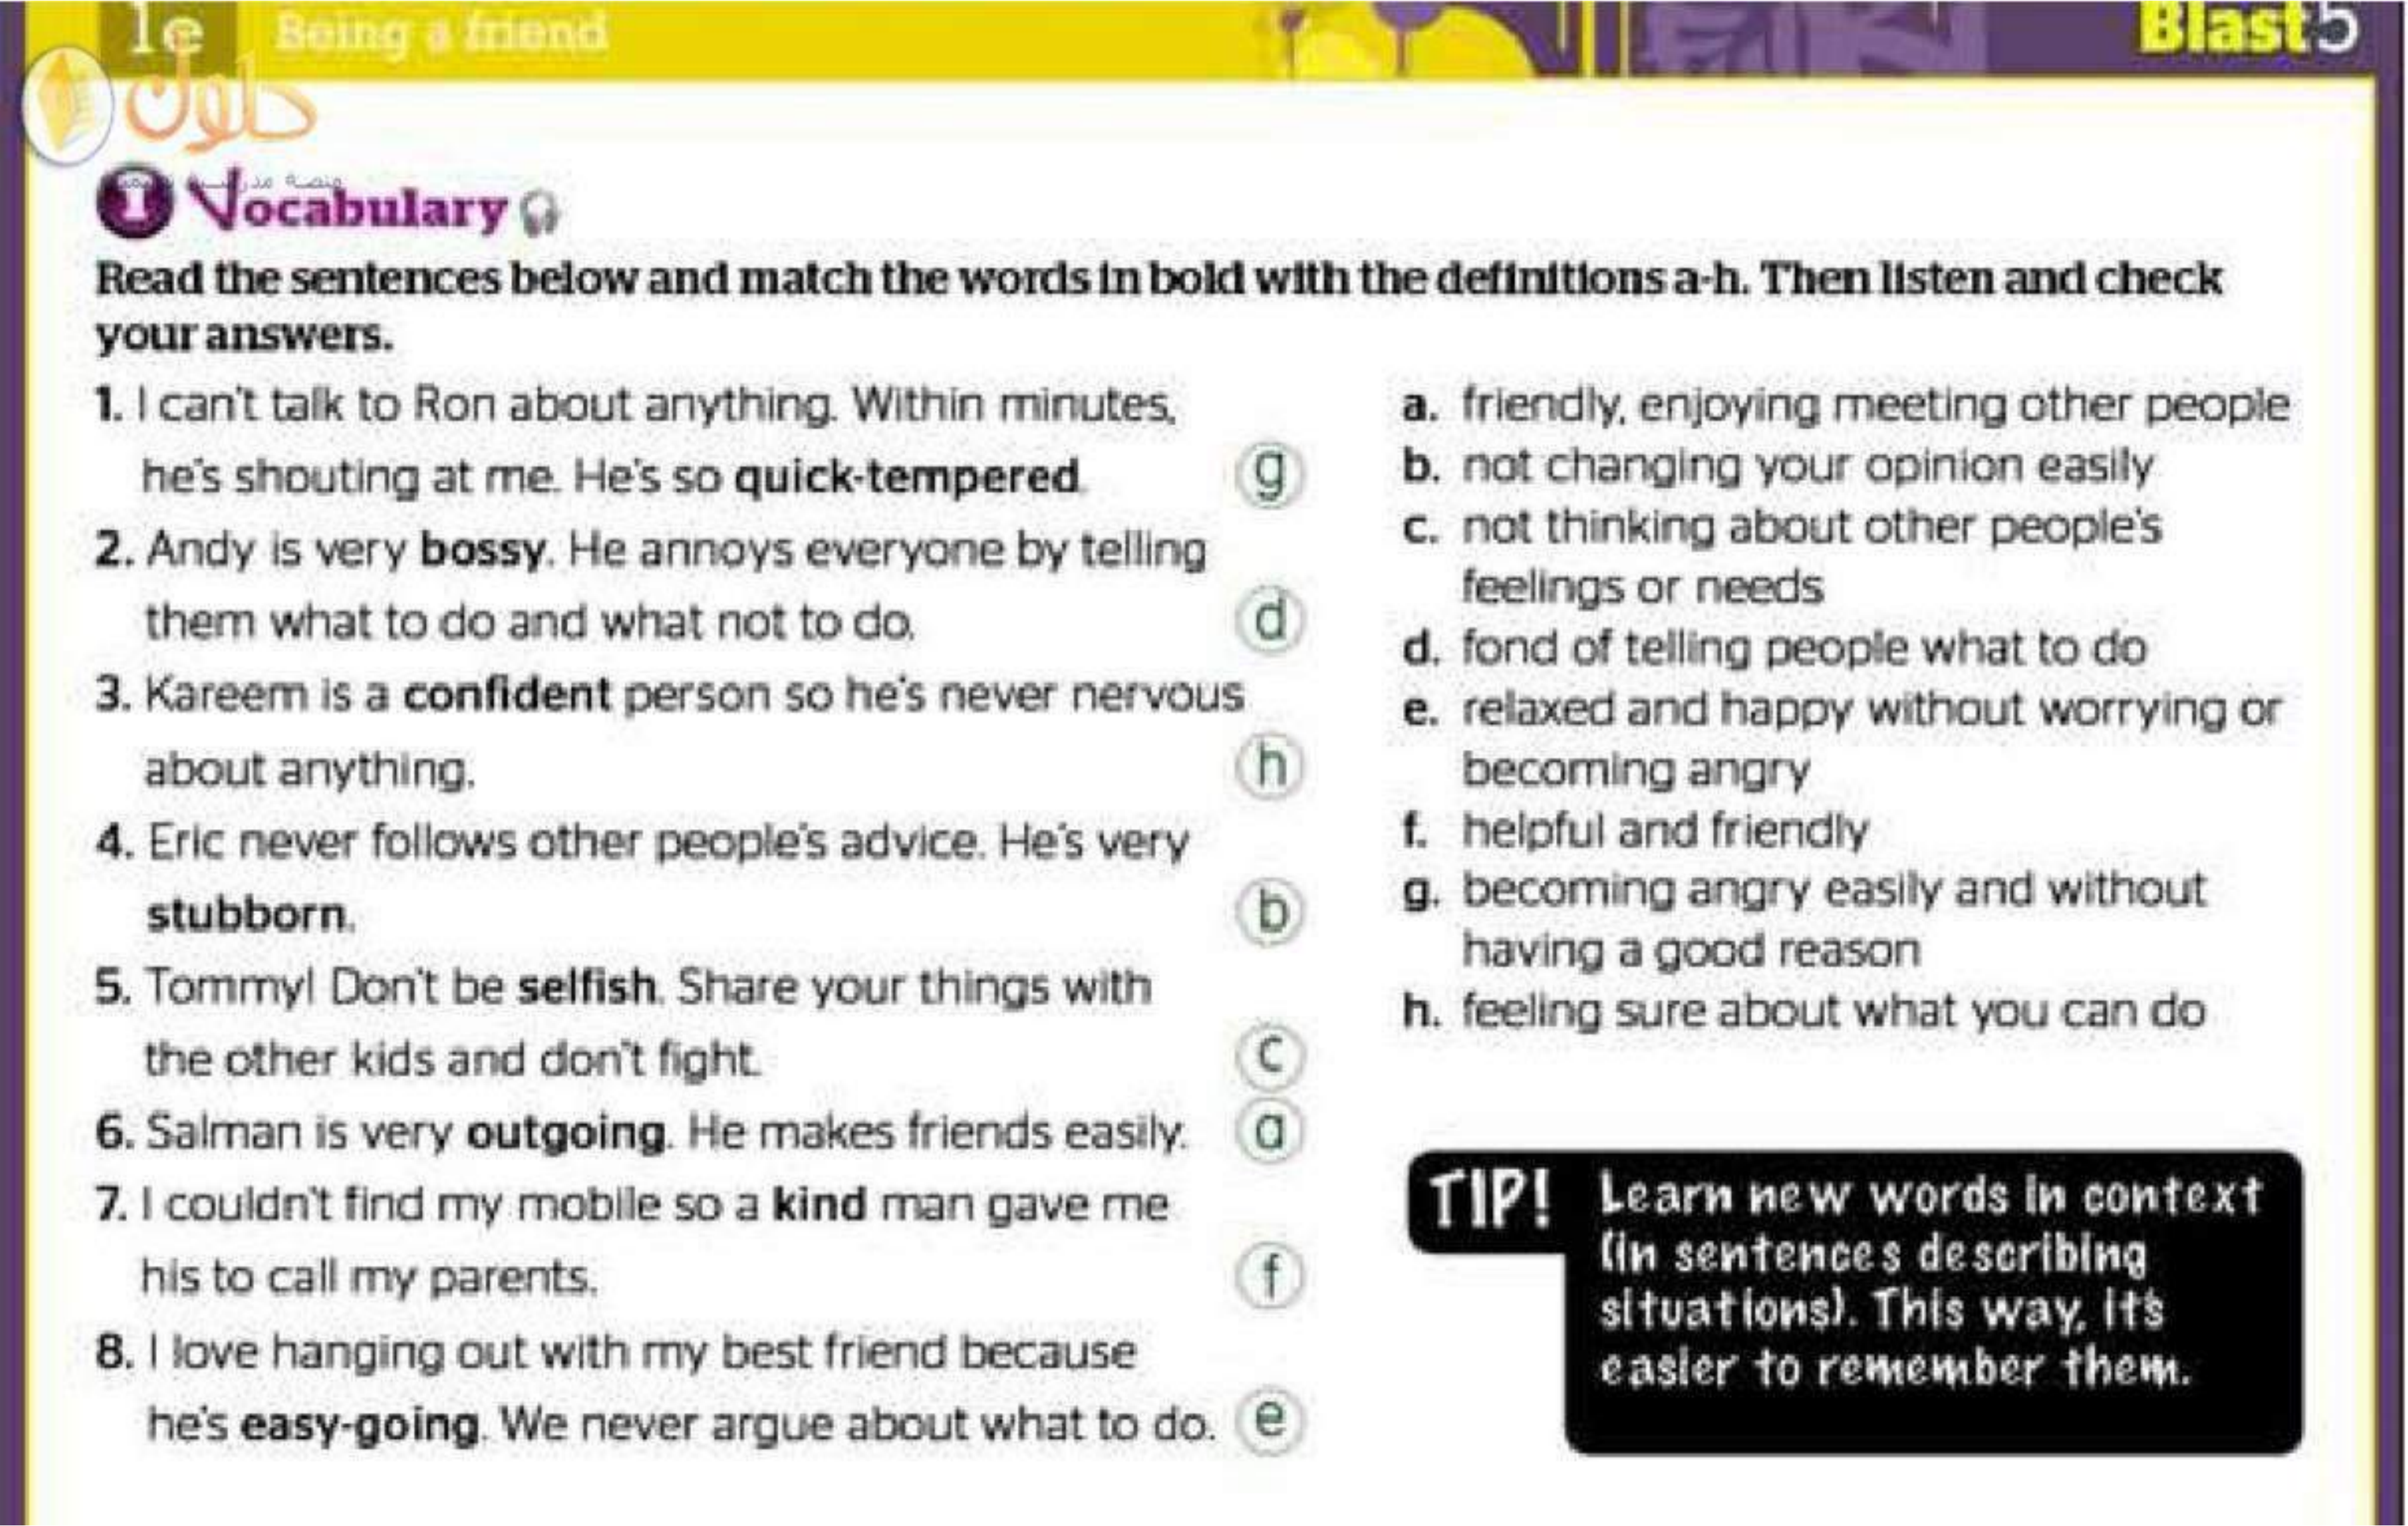 1e Being a friend
Blast 5
حلول
1 Vocabulary
Read the sentences below and match the words in bold with the definitions a-h. Then listen and check
your answers.
1. I can't talk to Ron about anything. Within minutes,
he's shouting at me. He's so quick-tempered.
g
2. Andy is very bossy. He annoys everyone by telling
them what to do and what not to do.
d
3. Kareem is a confident person so he's never nervous
about anything.
h
4. Eric never follows other people's advice. He's very
stubborn.
b
5. Tommy! Don't be selfish. Share your things with
the other kids and don't fight.
c
6. Salman is very outgoing. He makes friends easily.
a
7. I couldn't find my mobile so a kind man gave me
his to call my parents.
f
8. I love hanging out with my best friend because
he's easy-going. We never argue about what to do.
e
a. friendly, enjoying meeting other people
b. not changing your opinion easily
c. not thinking about other people's
feelings or needs
d. fond of telling people what to do
e. relaxed and happy without worrying or
becoming angry
f. helpful and friendly
g. becoming angry easily and without
having a good reason
h. feeling sure about what you can do
TIP! Learn new words in context
(in sentences describing
situations). This way, it's
easier to remember them.